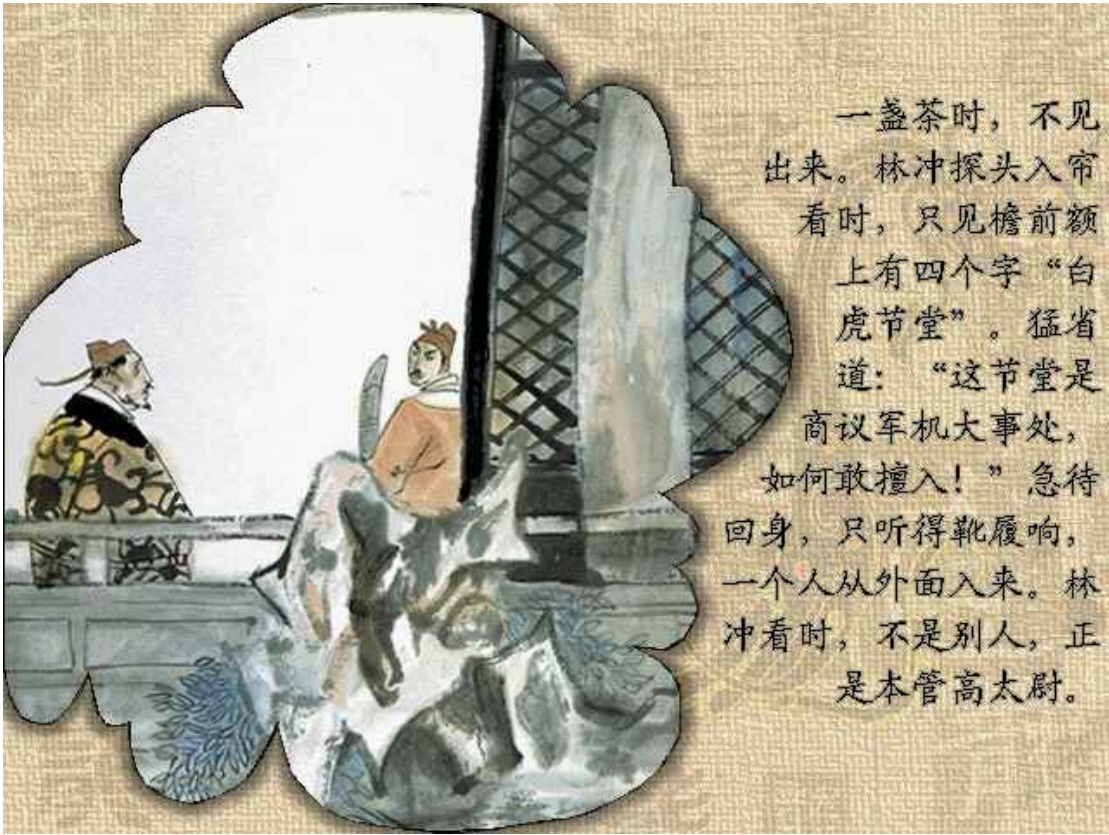 一盏茶时，不见
出来。林冲探头入帘
看时，只见檐前额
上有四个字“白
虎节堂”。猛省
道：“这节堂是
商议军机大事处，
如何敢擅入！”急待
回身，只听得靴履响，
一个人从外面入来。林
冲看时，不是别人，正
是本管高太尉。